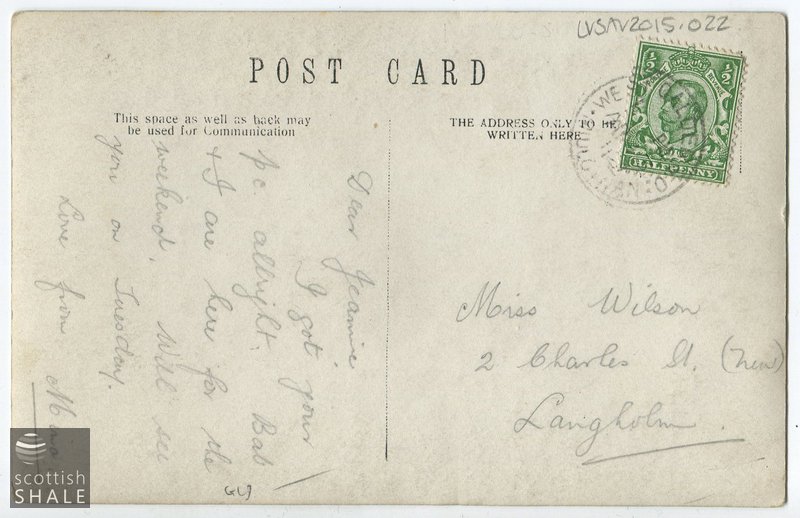 LVSAV2015.022
POST CARD
This space as well as back may
be used for Communication
THE ADDRESS ONLY TO BE
WRITTEN HERE
½ ½
HALFPENNY
WEST CALDER
Dear Jeannie
I got your
p.c. allright. Bab
& I are here for the
weekend. Will see
you on Tuesday.
Love from
Miss Wilson
2 Charles St. (New)
Langholm.
scottish
SHALE